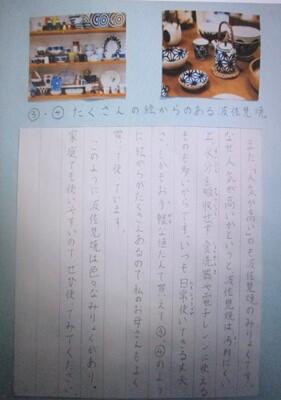 ③・④ たくさんの絵からのある波佐見焼
また、「人気が高い」のも波佐見焼のみりょくです。
なぜ人気が高いかというと、波佐見焼は汚れにく
く、水分を吸収せず、食洗器や電子レンジに使える
ものも多いからです。いつも日常使いできる丈夫
さ、しかもお手軽な値だんで買えて③④のよう
に絵からがたくさんあるので私のお母さんもよく
買って使っています。
このように波佐見焼は色々なみりょくがあり、
家庭でも使いやすいのでぜひ使ってみてください。